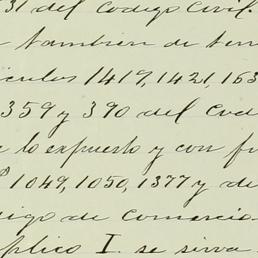 31 del Codigo Civil.
tambien de ten
iculos 1419, 1421, 163
359 y 390 del Cod
lo expuesto y con fu
1049, 1050, 1377 y de
igo de Comercio
plico I. se sirva